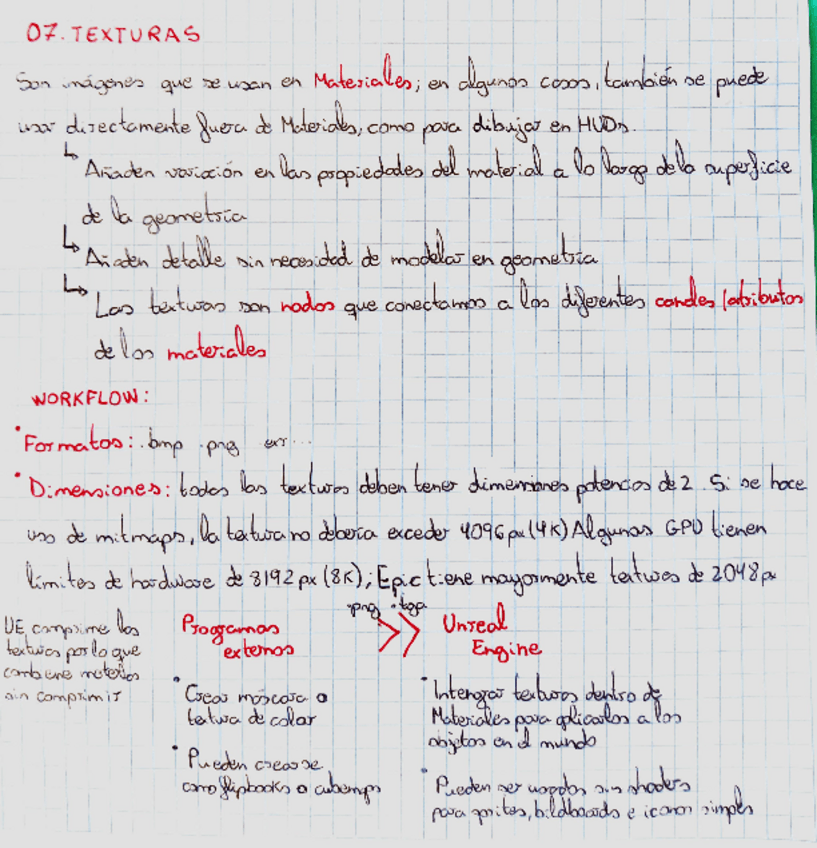 07. TEXTURAS
Son imágenes que se usan en Materiales; en algunos casos, también se puede
usar directamente fuera de Materiales, como para dibujar en HUDs.
↳ Añaden variación en las propiedades del material a lo largo de la superficie
de la geometría
↳ Añaden detalle sin necesidad de modelar en geometría
↳ Las texturas son nodos que conectamos a los diferentes canales/atributos
de los materiales
WORKFLOW:
• Formatos: .bmp .png exr...
• Dimensiones: todas las texturas deben tener dimensiones potencias de 2. Si se hace
uso de mitmaps, la textura no debería exceder 4096 px (4K) Algunas GPU tienen
límites de hardware de 8192 px (8K); Epic tiene mayormente texturas de 2048 px
UE comprime las
texturas por lo que
combiene meterlas
sin comprimir
Programas
externos
• Crear máscara o
textura de color
• Pueden crearse
como flipbooks o cubemps
.png .tga
>>
Unreal
Engine
• Intengrar texturas dentro de
Materiales para aplicarlos a los
objetos en el mundo
• Pueden ser usadas sin shaders
para sprites, bildboards e iconos simples